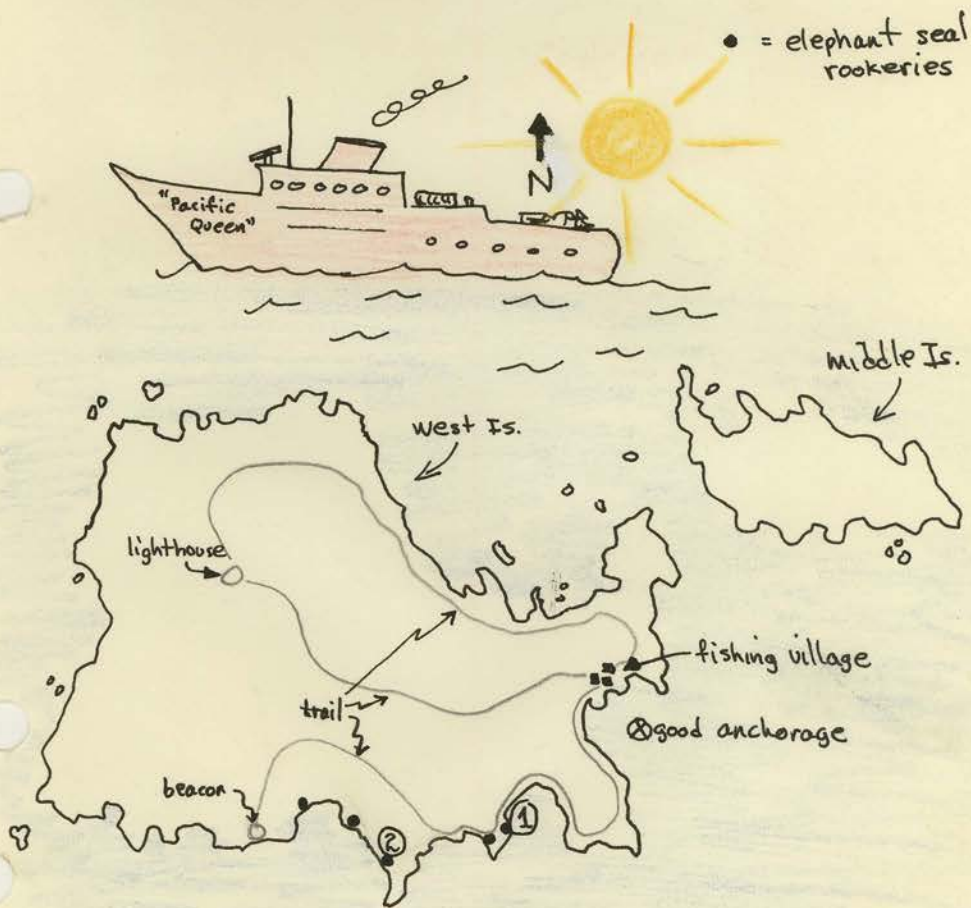 ● = elephant seal
rookeries
"Pacific
Queen"
N
middle Is.
west Is.
lighthouse
fishing village
trail
⊗good anchorage
beacon
①
②